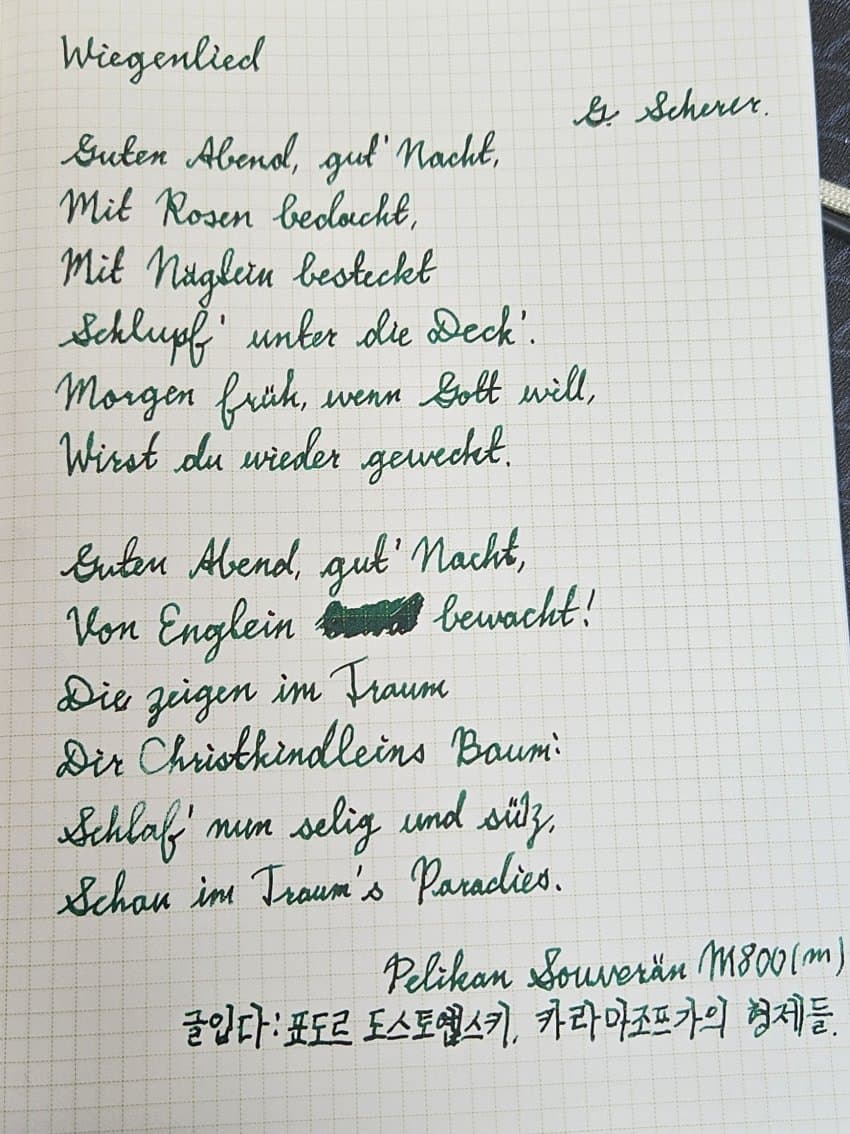 Wiegenlied
G. Scherer.
Guten Abend, gut' Nacht,
Mit Rosen bedacht,
Mit Näglein besteckt
Schlupf' unter die Deck'.
Morgen früh, wenn Gott will,
Wirst du wieder geweckt.
Guten Abend, gut' Nacht,
Von Englein bewacht!
Die zeigen im Traum
Dir Christkindleins Baum:
Schlaf' nun selig und süß,
Schau im Traum's Paradies.
Pelikan Souverän M800(m)
글입다: 표도르 도스토옙스키, 카라마조프가의 형제들.